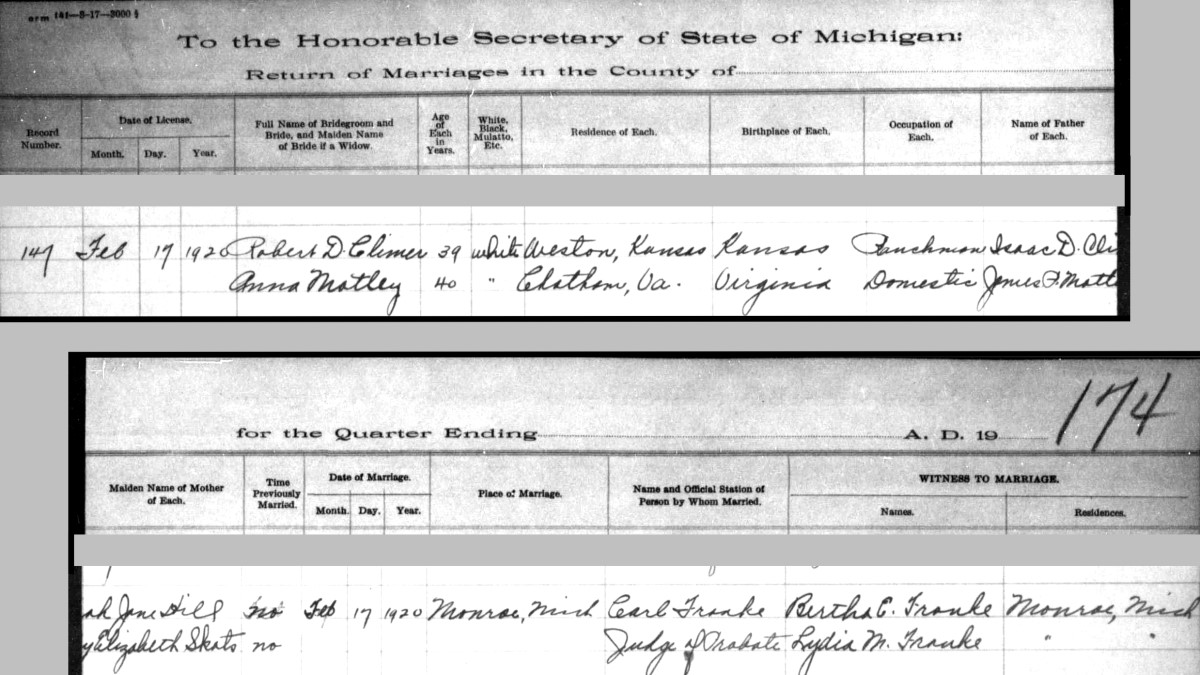 orm 141—5-17—3000
To the Honorable Secretary of State of Michigan:
Return of Marriages in the County of
Record Number.
Date of License.
Month. Day. Year.
Full Name of Bridegroom and Bride, and Maiden Name of Bride if a Widow.
Age of Each in Years.
White, Black, Mulatto, Etc.
Residence of Each.
Birthplace of Each.
Occupation of Each.
Name of Father of Each.
147 Feb 17 1920 Robert D. Climer 39 white Weston, Kansas Kansas Ranchman Isaac D. Cli
Anna Motley 40 " Chatham, Va. Virginia Domestic James F. Motl
174
for the Quarter Ending A. D. 19
Maiden Name of Mother of Each.
Time Previously Married.
Date of Marriage.
Month. Day. Year.
Place of Marriage.
Name and Official Station of Person by Whom Married.
WITNESS TO MARRIAGE.
Names. Residences.
ah Jane Hill no Feb 17 1920 Monroe, Mich Carl Franke Bertha E. Franke Monroe, Mich
y Elizabeth Skots no Judge of Probate Lydia M. Franke " "